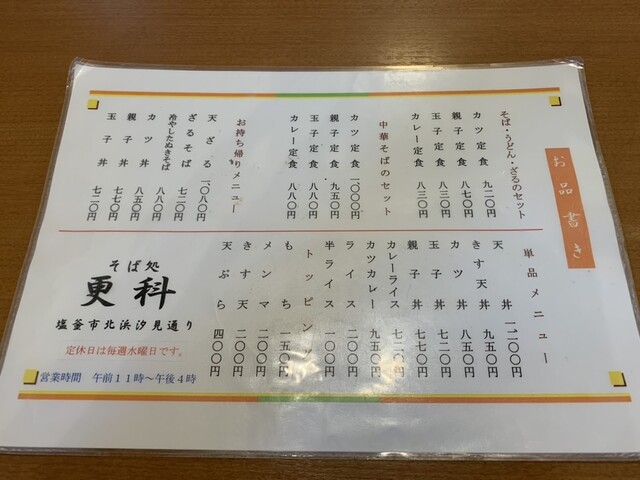 お品書き
そば・うどん・ざるのセット
カツ定食 九二〇円
親子定食 八七〇円
玉子定食 八三〇円
カレー定食 八三〇円
中華そばのセット
カツ定食 一〇〇〇円
親子定食 九五〇円
玉子定食 八八〇円
カレー定食 八八〇円
お持ち帰りメニュー
天ざる 一〇八〇円
ざるそば 七二〇円
冷やしたぬきそば 八八〇円
カツ丼 八五〇円
親子丼 七七〇円
玉子丼 七二〇円
単品メニュー
天丼 一二〇〇円
きす天丼 九五〇円
カツ丼 八五〇円
玉子丼 七二〇円
親子丼 七七〇円
カレーライス 七二〇円
カツカレー 九五〇円
ライス 二〇〇円
半ライス 一〇〇円
トッピング
もち 一五〇円
メンマ 二〇〇円
きす天 二〇〇円
天ぷら 四〇〇円
そば処
更科
塩釜市北浜汐見通り
定休日は毎週水曜日です。
営業時間 午前11時~午後4時